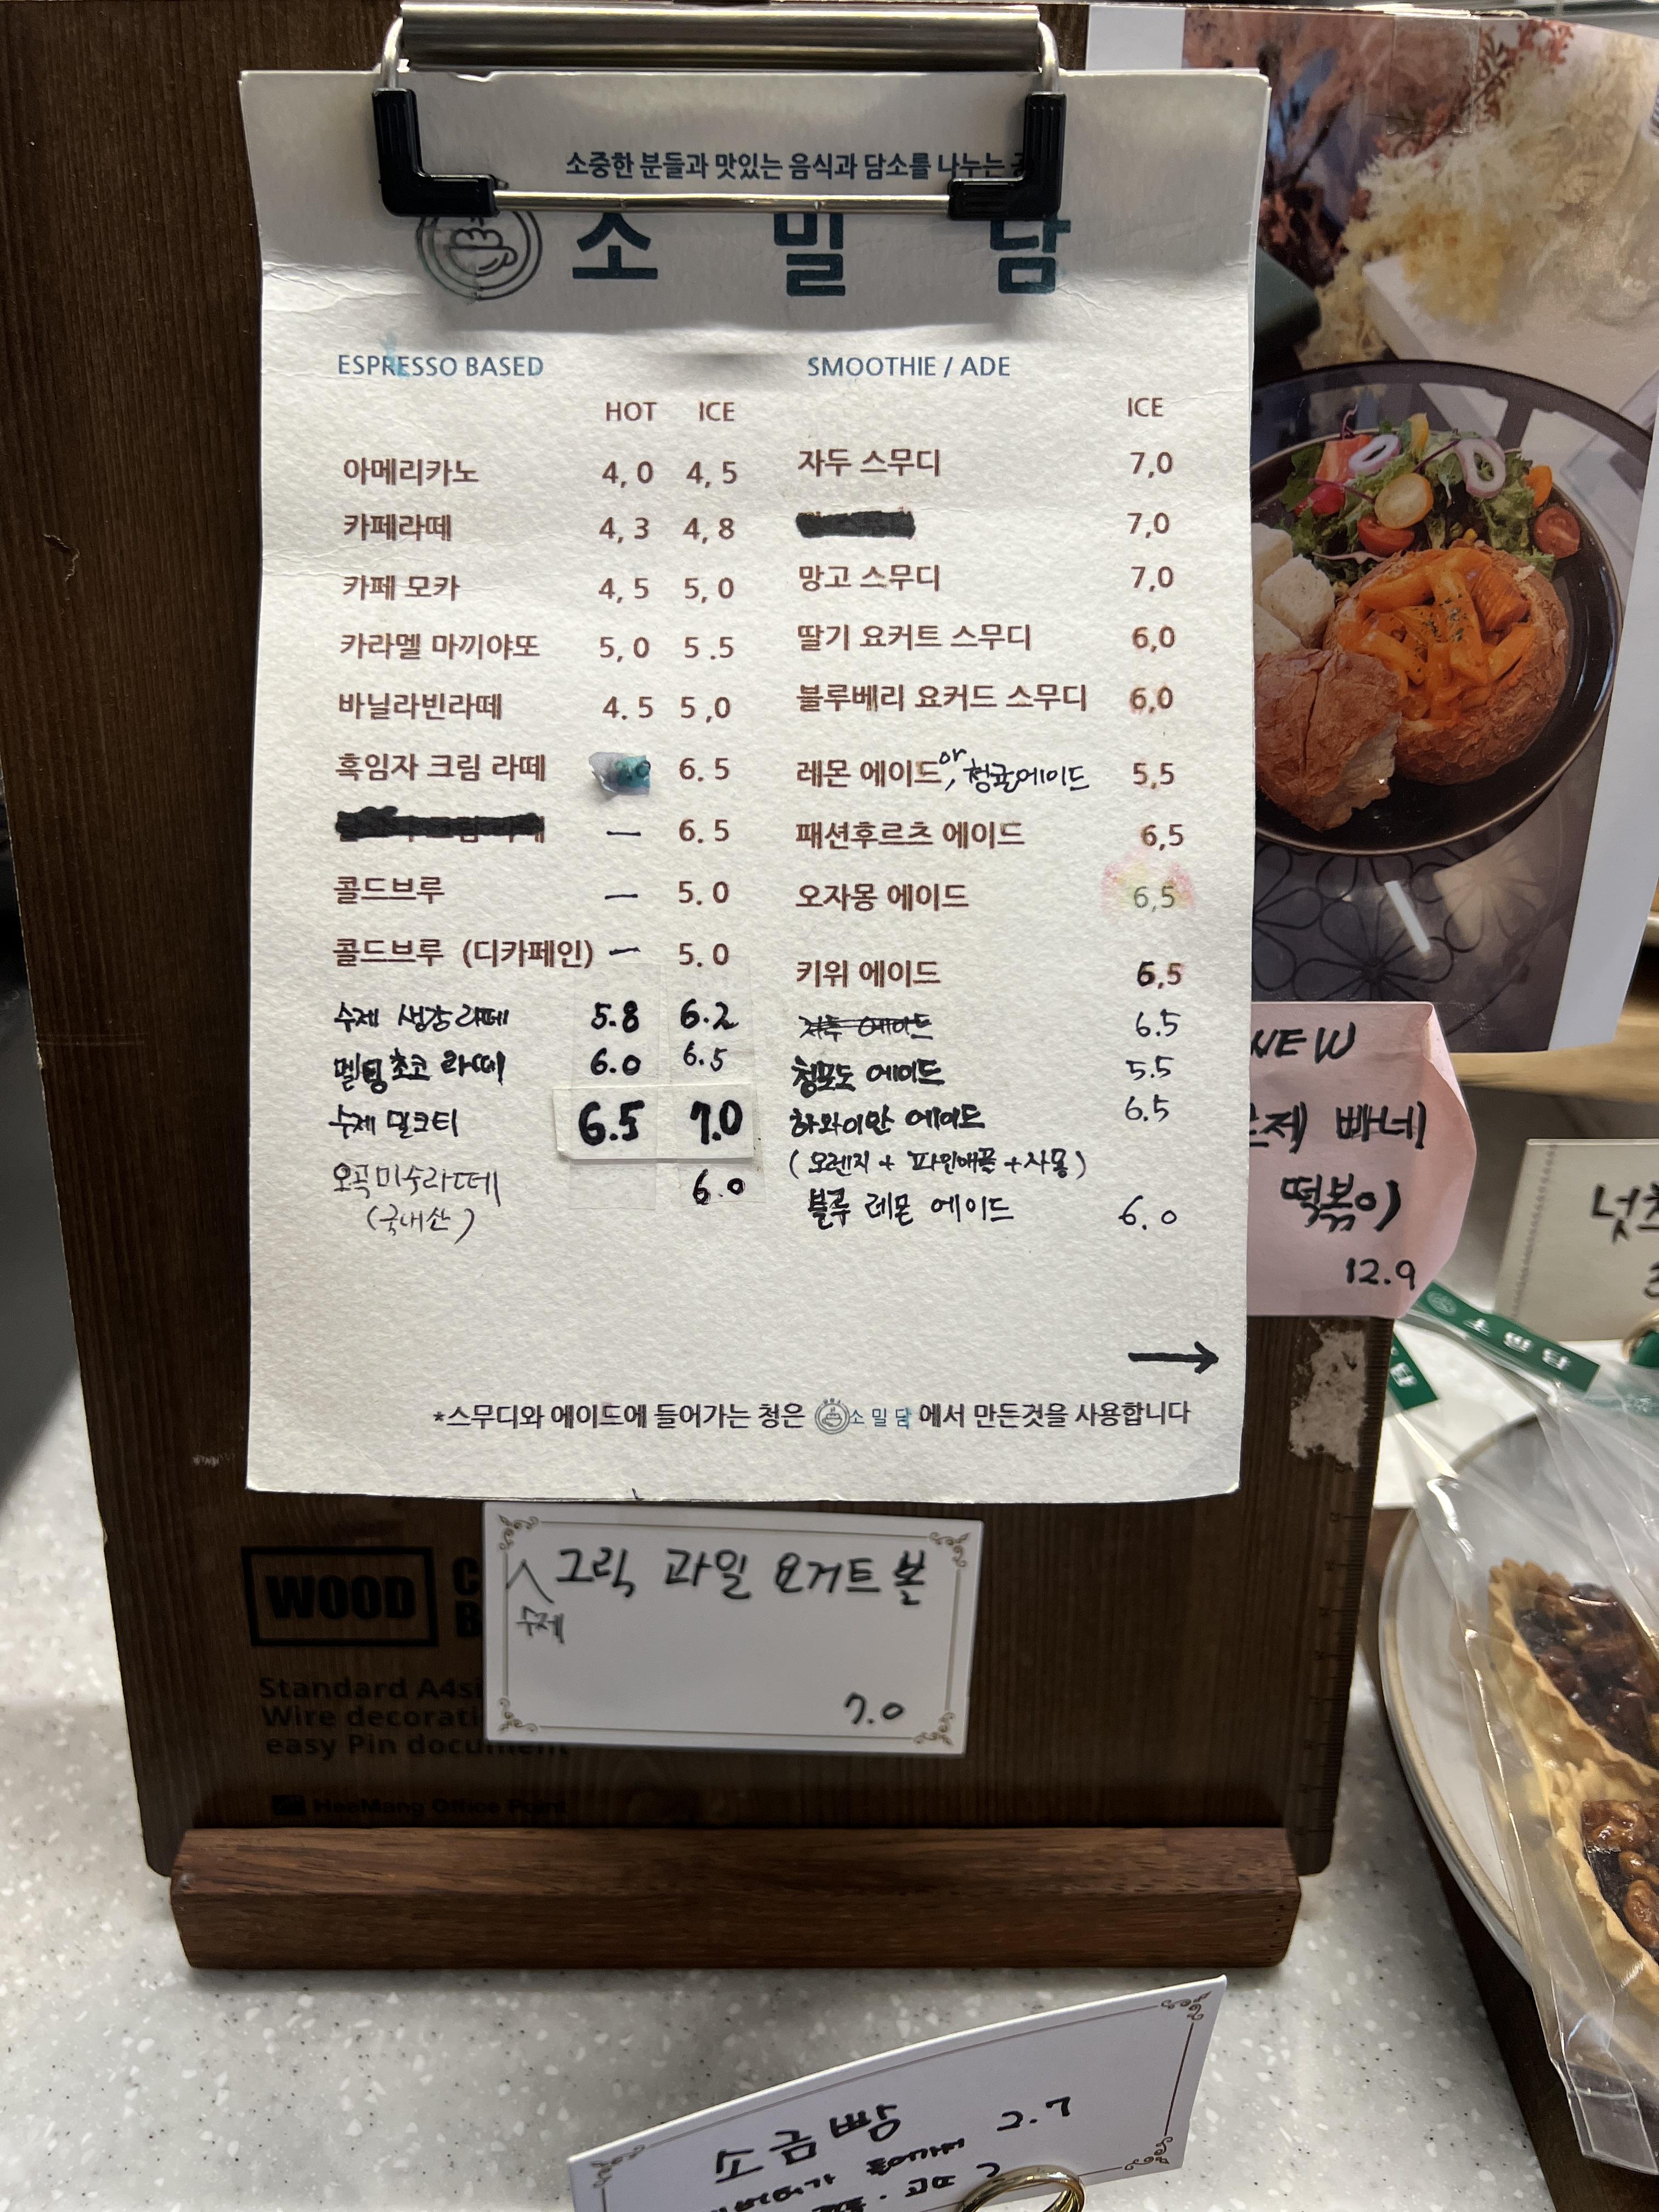 소중한 분들과 맛있는 음식과 담소를 나누는
소 밀 담
ESPRESSO BASED
HOT ICE
아메리카노 4,0 4,5
카페라떼 4,3 4,8
카페 모카 4,5 5,0
카라멜 마끼야또 5,0 5.5
바닐라빈라떼 4.5 5,0
흑임자 크림 라떼 6.5
— 6.5
콜드브루 — 5.0
콜드브루 (디카페인) — 5.0
수제 생강라떼 5.8 6.2
멜팅 초코 라떼 6.0 6.5
수제 밀크티 6.5 7.0
오곡미수라떼 6.0
(국내산)
SMOOTHIE / ADE
ICE
자두 스무디 7,0
7,0
망고 스무디 7,0
딸기 요커트 스무디 6,0
블루베리 요커드 스무디 6,0
레몬 에이드 or, 청귤에이드 5,5
패션후르츠 에이드 6,5
오자몽 에이드 6,5
키위 에이드 6,5
자두 에이드 6.5
청포도 에이드 5.5
하와이안 에이드 6.5
(오렌지 + 파인애플 + 자몽)
블루 레몬 에이드 6.0
→
*스무디와 에이드에 들어가는 청은 소밀담 에서 만든것을 사용합니다
NEW
빠네
떡볶이
12.9
소밀담
그릭 과일 요거트 볼
수제
7.0
WOOD
Standard
Wire
easy Pin document
HeeMang Office Point
소금빵 2.7